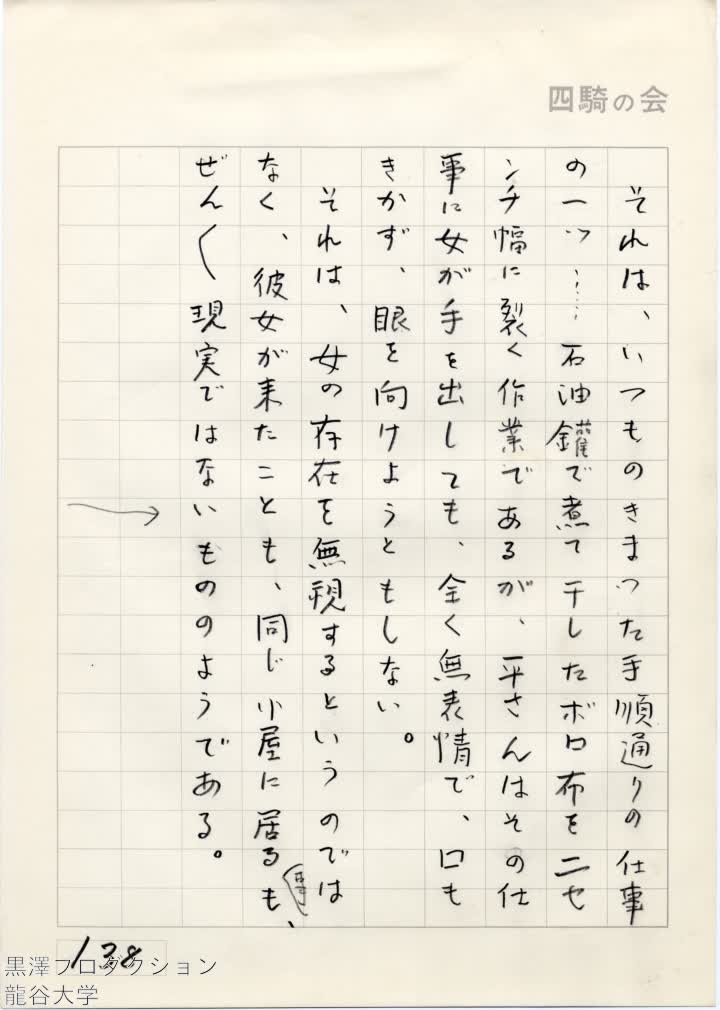 四騎の会
それは、いつものきまつた手順通りの仕事
の一つ……石油鑵で煮て干したボロ布を二セ
ンチ幅に裂く作業であるが、平さんはその仕
事に女が手を出しても、全く無表情で、口も
きかず、眼を向けようともしない。
それは、女の存在を無視するというのでは
なく、彼女が来たことも、同じ小屋に居る事も、
ぜん〱現実ではないもののようである。
138
黒澤プロダクション
龍谷大学